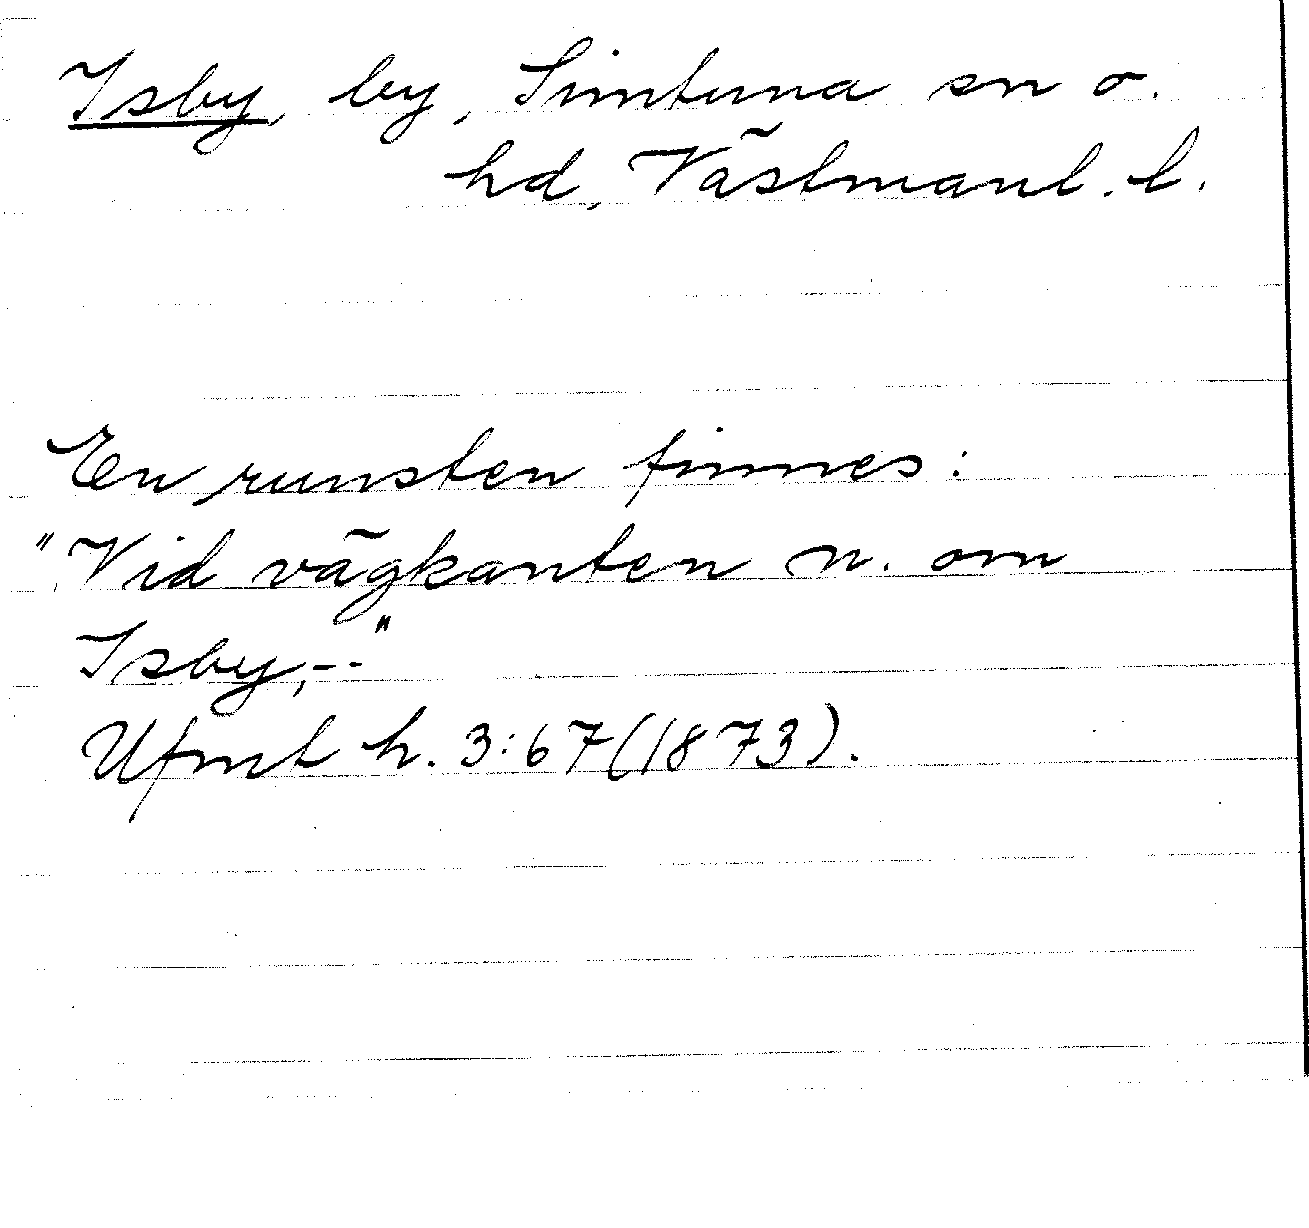 Isby, by, Simtuna sn o.
hd, Västmanl. l.
En runsten finnes:
"Vid vägkanten n. om
Isby,--"
Ufmt h. 3:67(1873).